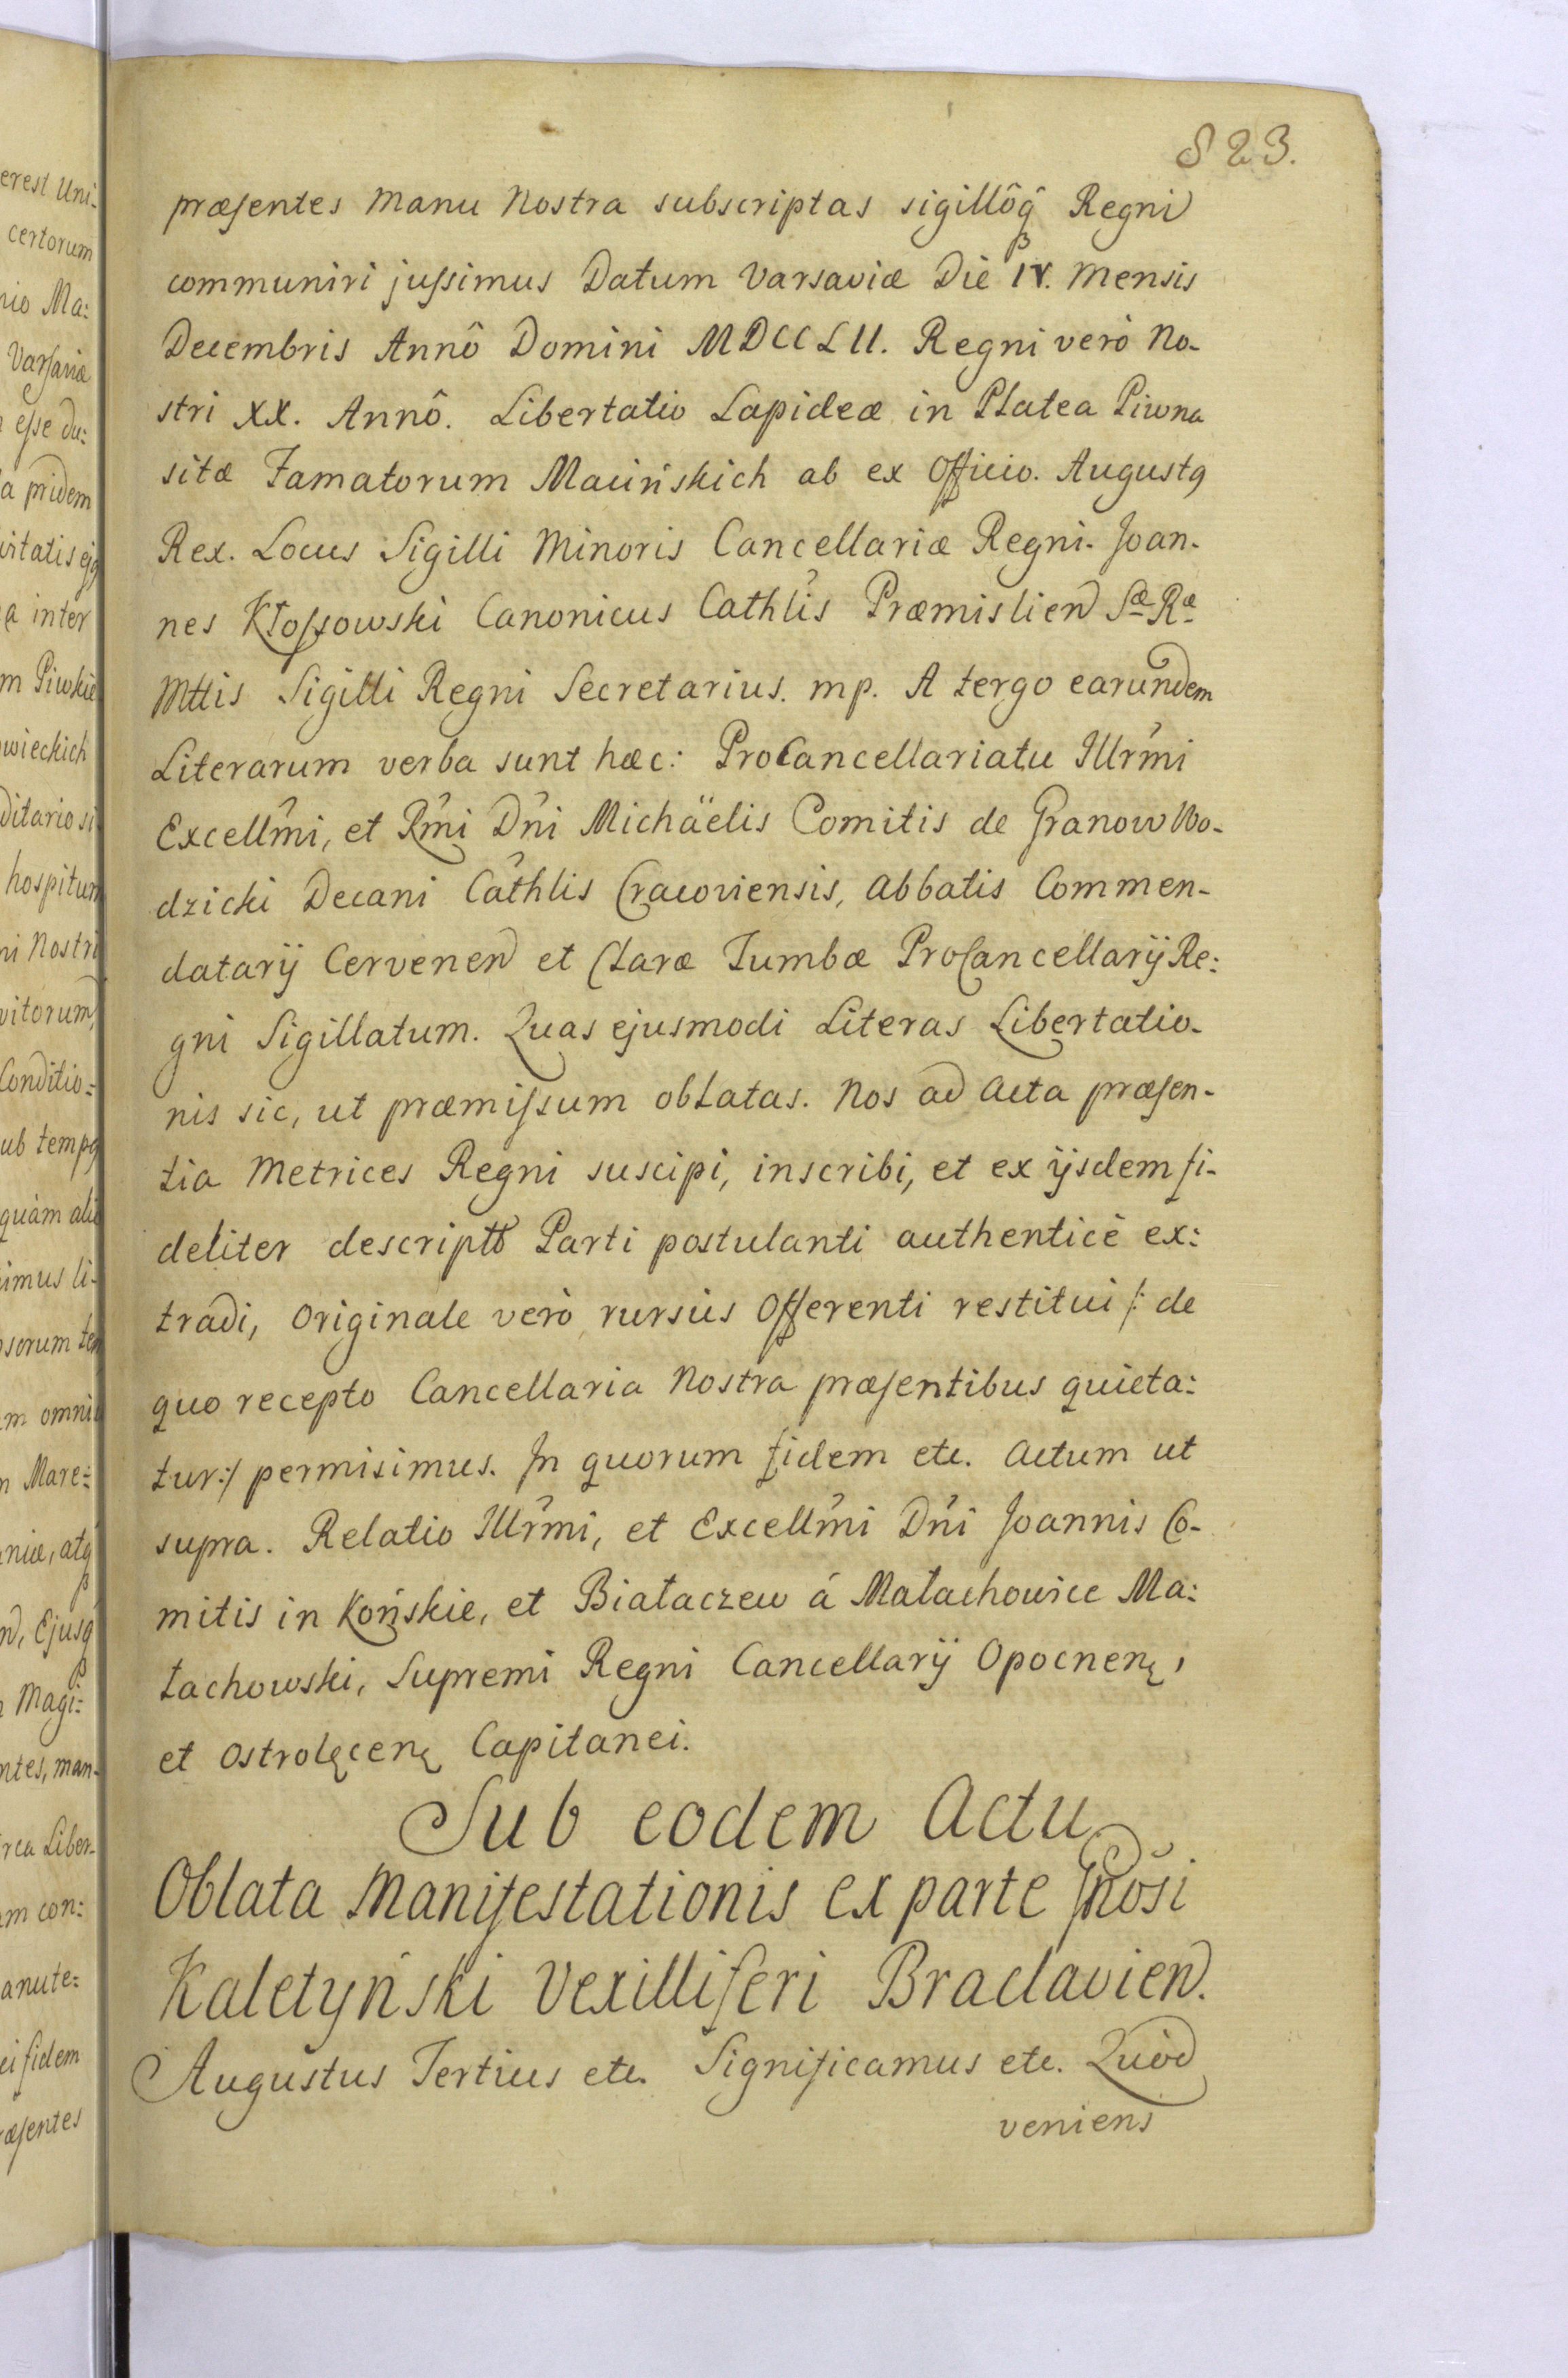 823.
præsentes Manu Nostra subscriptas sigillôq̂ Regni
communiri jussimus Datum Varsaviæ Die IV. Mensis
Decembris Annô Domini MDCCLII. Regni verò No-
stri XX. Annô. Libertatio Lapideæ in Platea Piwna
sitæ Famatorum Macińskich ab ex Officio. Augustꝯ
Rex. Locus Sigilli Minoris Cancellariæ Regni. Joan-
nes Kłossowski Canonicus Cathlis Præmislien Sæ Ræ
Mttis Sigilli Regni Secretarius. mp. A tergo earundem
Literarum verba sunt hæc: ProCancellariatu Illrmi
Excellmi, et Rmi Dni Michäelis Comitis de Granow Wo-
dzicki Decani Cathlis Cracoviensis, Abbatis Commen-
datarij Cervenen et Claræ Tumbæ ProCancellarij Re:
gni Sigillatum. Quas ejusmodi Literas Libertatio-
nis sic, ut præmissum oblatas. Nos ad Acta præsen-
tia Metrices Regni suscipi, inscribi, et ex ijsdem fi-
deliter descriptô Parti postulanti authenticè ex:
tradi, Originale verò rursùs Offerenti restitui /: de
quo recepto Cancellaria Nostra præsentibus quieta:
tur:/ permisimus. In quorum fidem etc. Actum ut
supra. Relatio Illrmi, et Excellmi Dni Joannis Co-
mitis in Końskie, et Białaczew á Małachowice Ma:
łachowski, Supremi Regni Cancellarij Opocnen,
et Ostrolęcen Capitanei.
Sub eodem Actu
Oblata Manifestationis ex parte Gnosi
Kaletyński Vexilliferi Braclavien.
Augustus Tertius etc. Significamus etc. Quòd
veniens